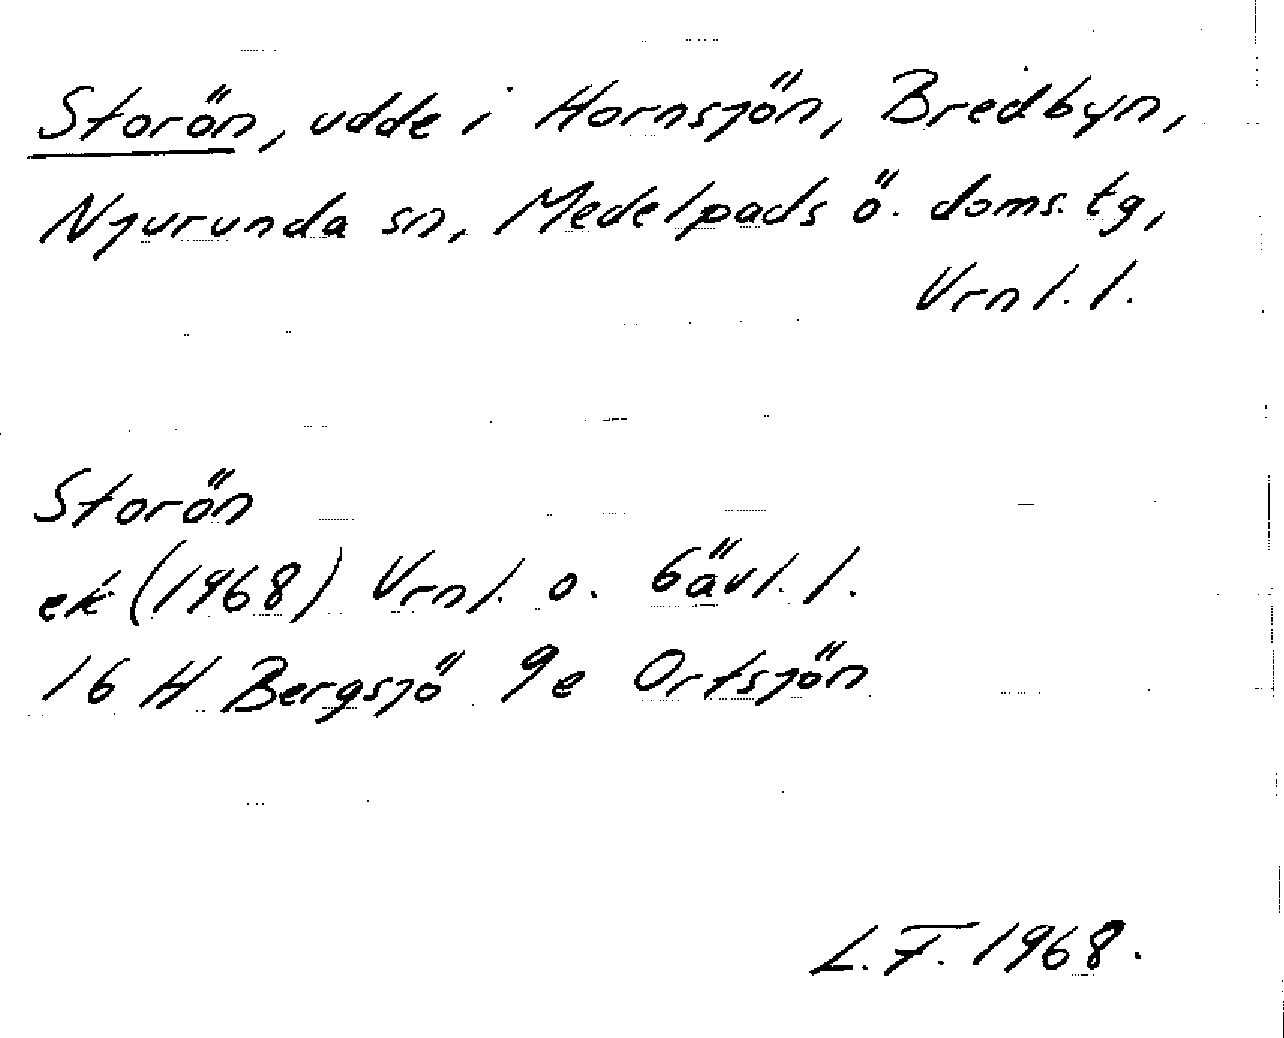 Storön, udde i Hornsjön, Bredbyn,
Njurunda sn, Medelpads ö. doms. tg,
Vrnl. l.
Storön
ek (1968) Vrnl. o. Gävl. l.
16 H Bergsjö 9e Ortsjön
L.F. 1968.